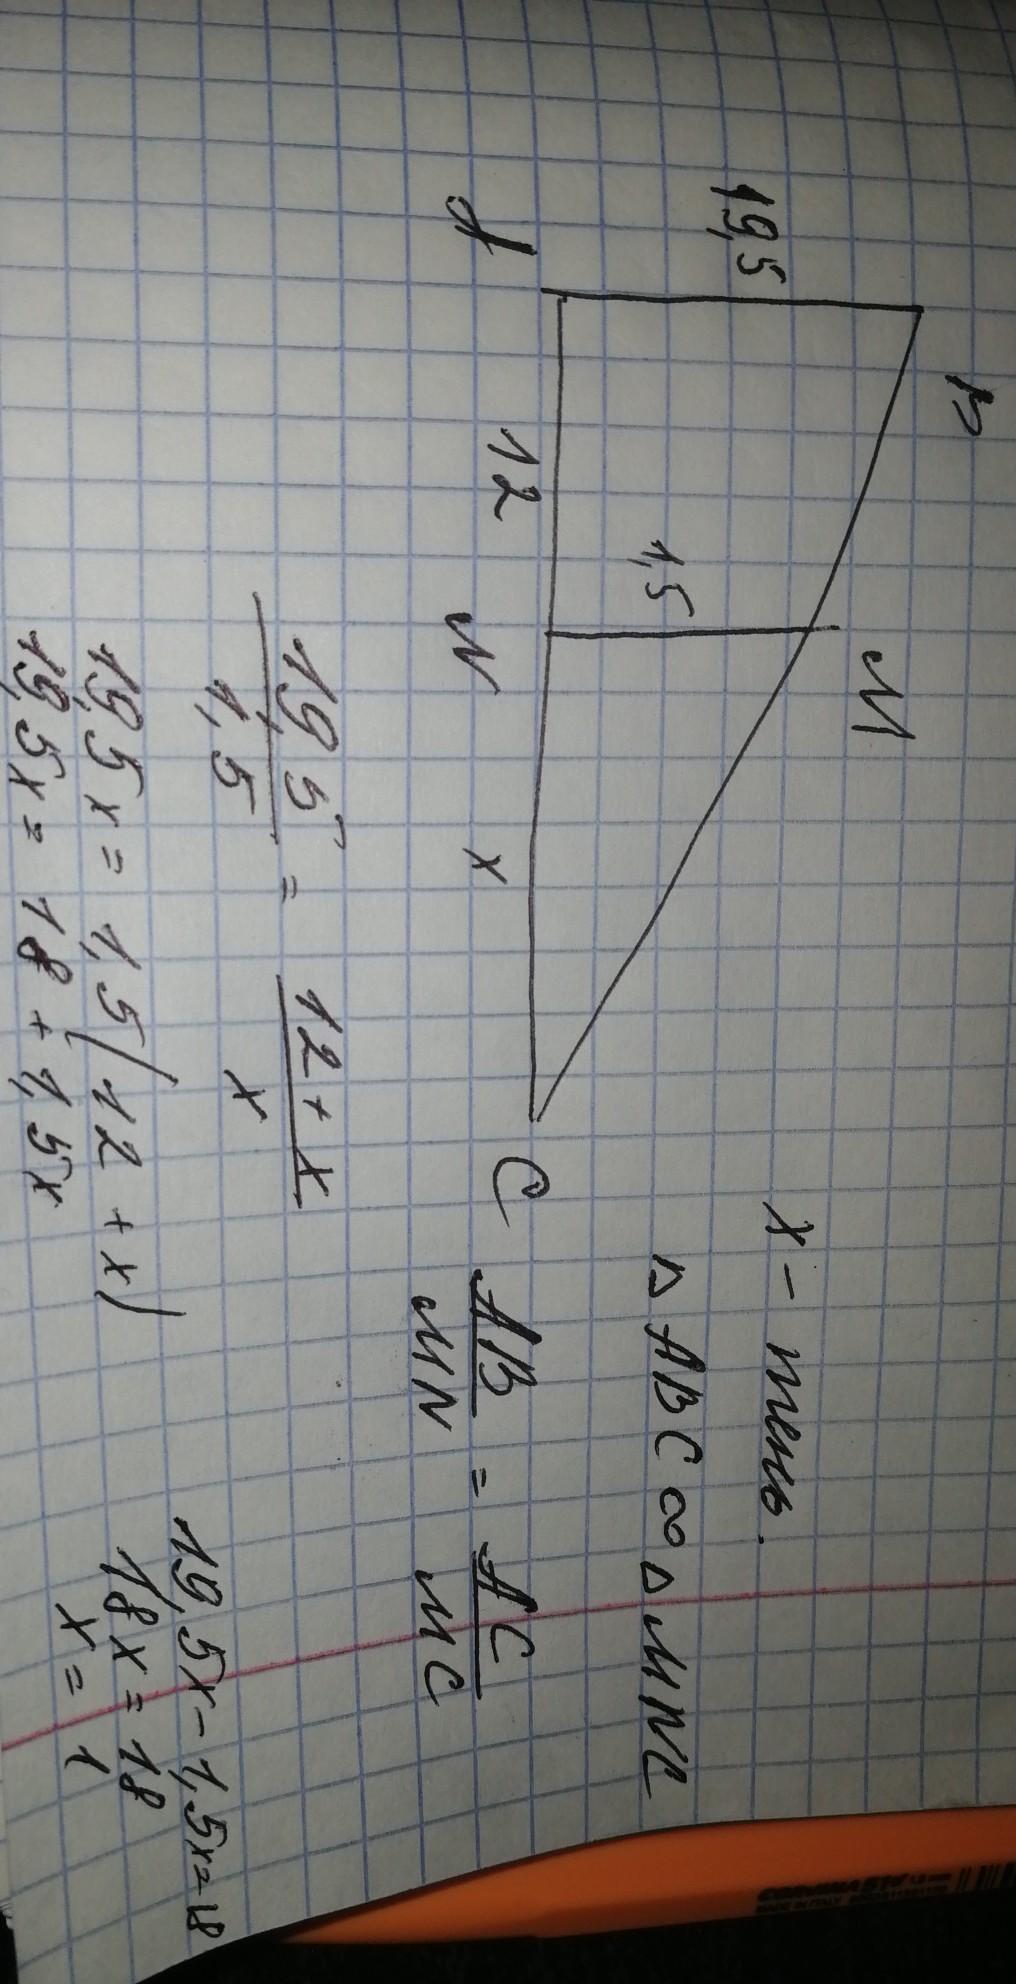 B
19,5
M
1,5
A
12
N
x
C
x - тень.
△ ABC ∞ △ MNC
AB/MN = AC/MC
19,5/1,5 = 12+x/x
19,5x = 1,5(12 + x)
19,5x = 18 + 1,5x
19,5x - 1,5x = 18
18x = 18
x = 1
MADE IN ITALY